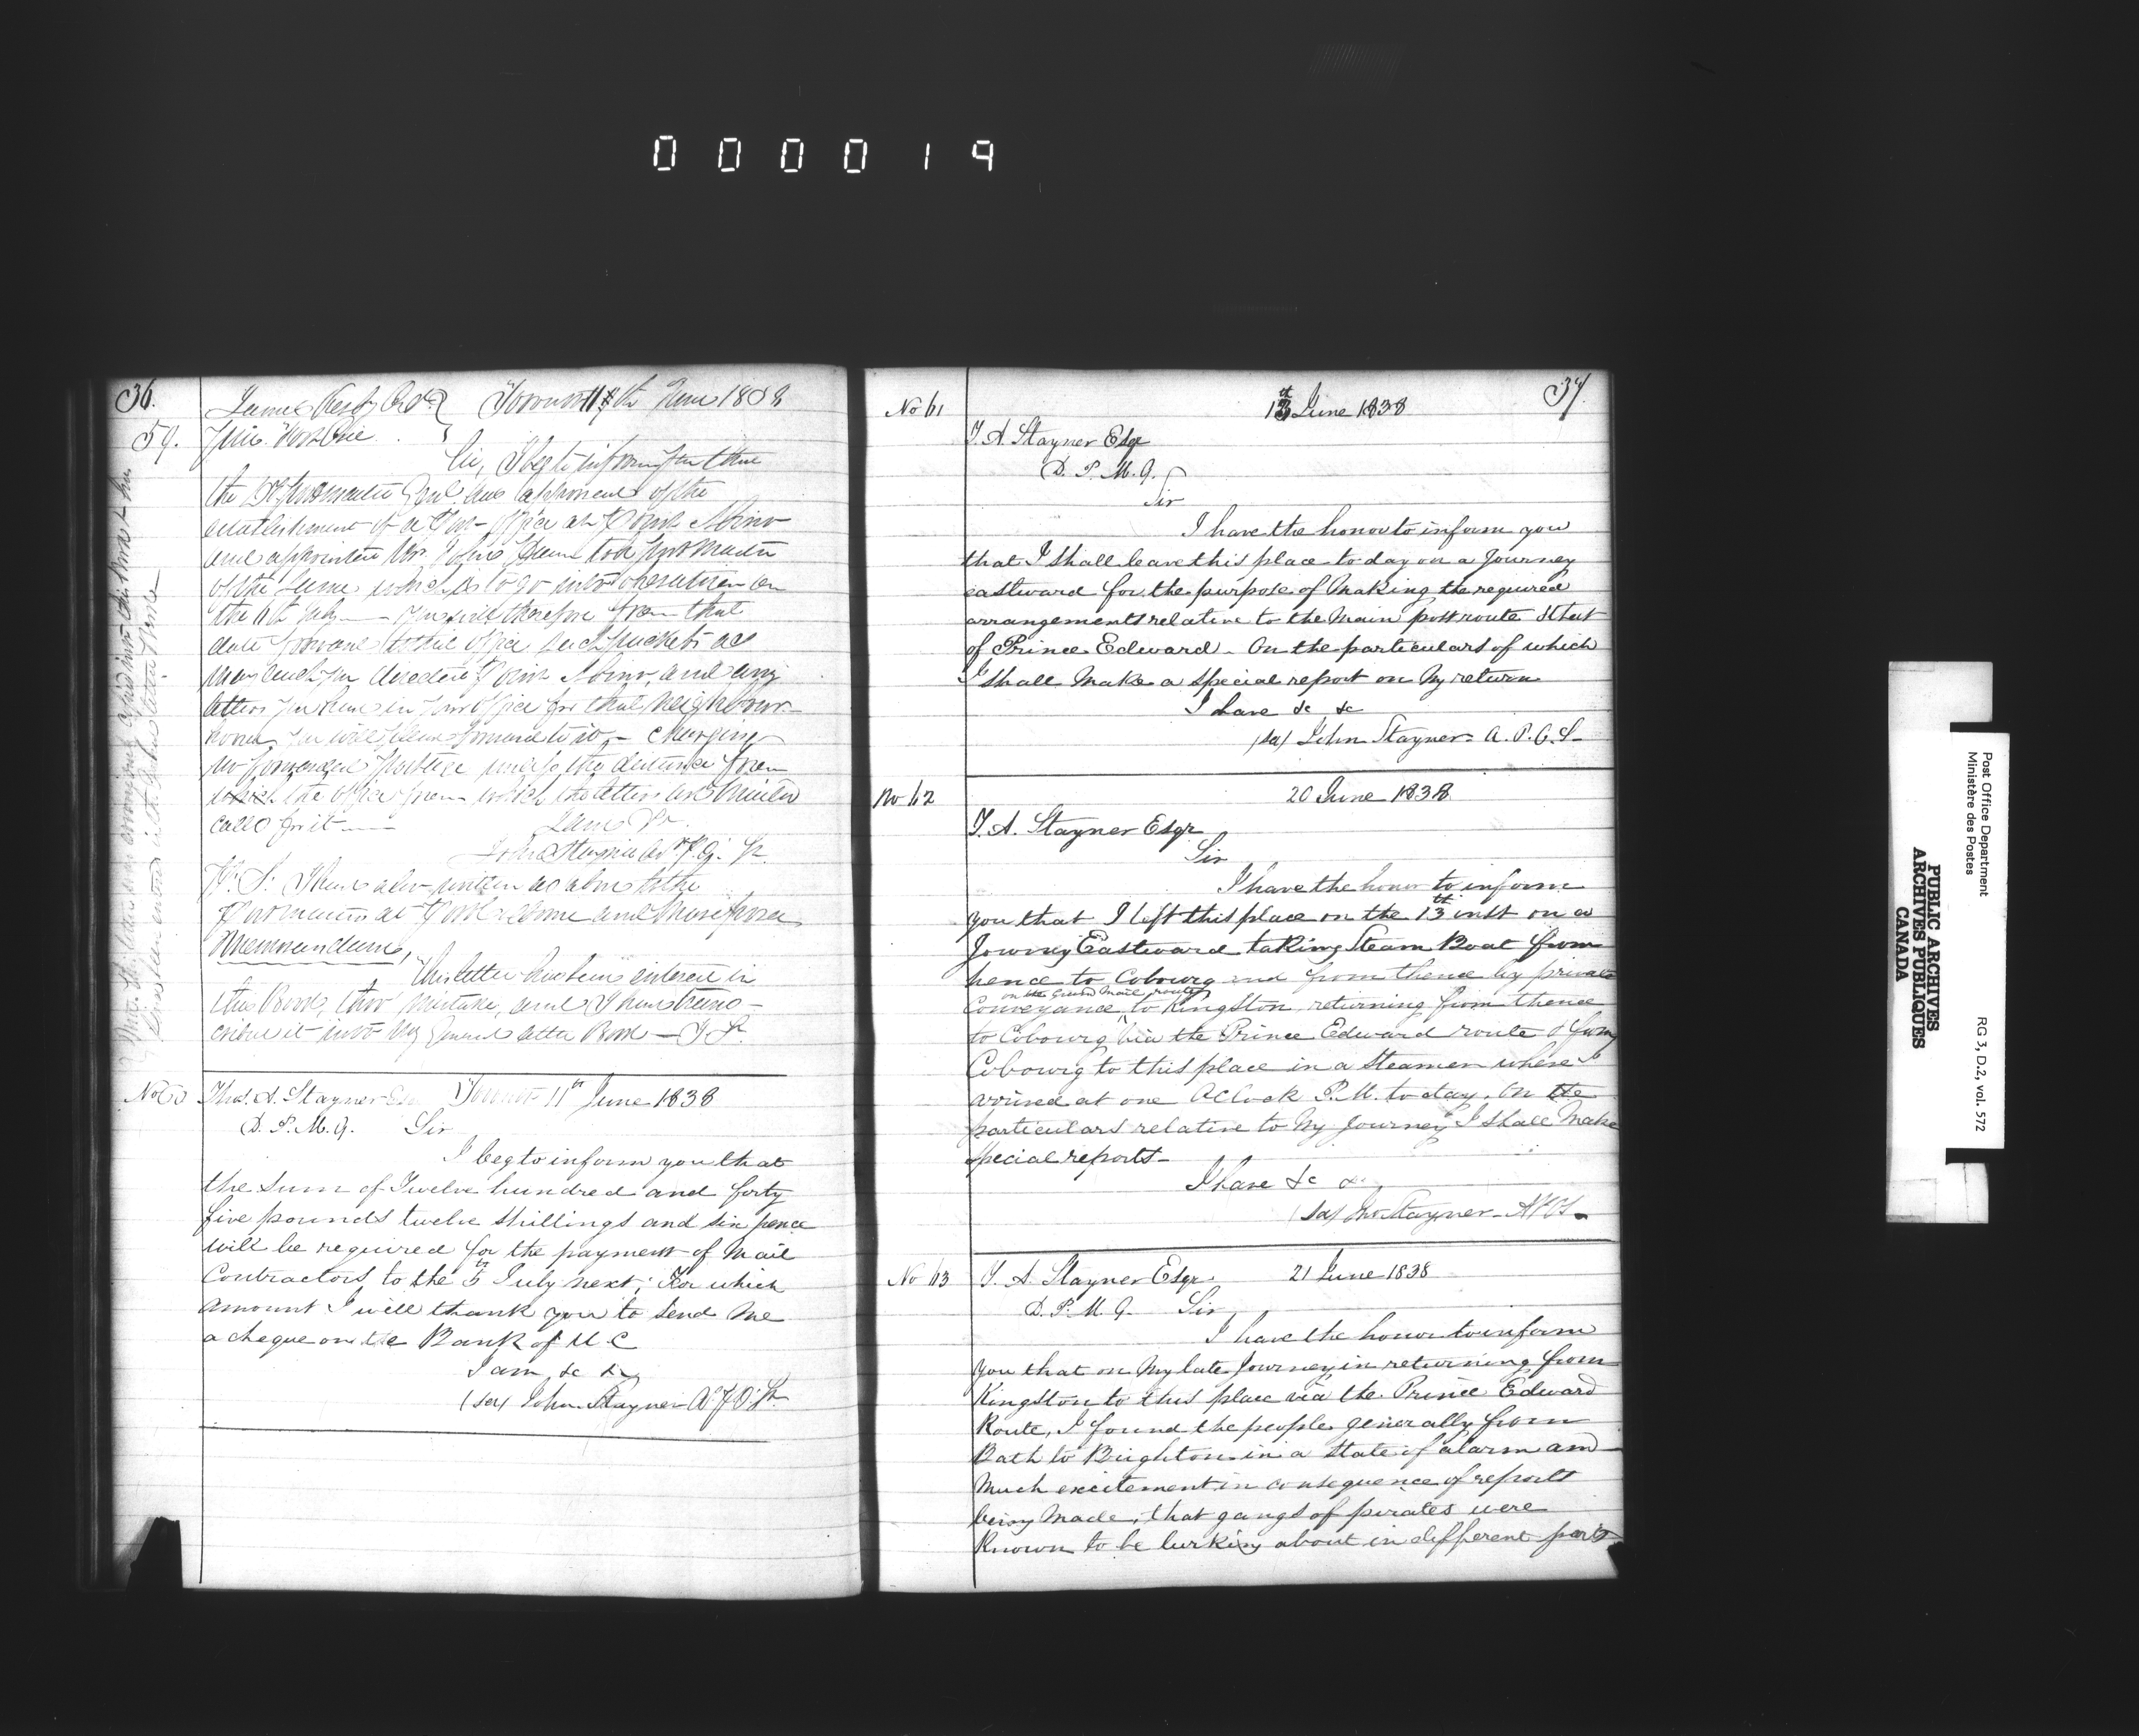 000019
36.
59.
James Kerby Toronto 11th June 1838
Fort Erie
Sir, I beg to inform you that
the Dy Postmaster Genl. has approved of the
establishment of a Post-office at Point Abino
and appointed Mr. to be Postmaster
of the same which is to go into operation on
the July — you will therefore from that
date forward to this office such packets as
may reach you directed Point Abino, and any
letters you have in your office for that neighbour-
hood, you will please forward to it, — charging
no forwarded postage unless the distance from
which the office from which the letters are mailed
calls for it —
I am &c.
John Stayner
P.S. I have also written as above to the
Postmasters at Port Colborne and
Memorandum,
This letter has been entered in
this Book, thro' mistake, and I have trans-
cribed it into my general letter Book — J S.
No 60
Thos. A. Stayner Esq Toronto 11th June 1838
D. P. M. G. Sir
I beg to inform you that
the sum of Twelve hundred and forty
five pounds twelve shillings and six pence
will be required for the payment of Mail
Contractors to the 5th July next; For which
amount I will thank you to send me
a cheque on the Bank of U C
I am &c &c
(sd) John Stayner
37.
No 61
13th June 1838
T. A. Stayner Esqr
D. P. M. G.
Sir
I have the honor to inform you
that I shall leave this place to day on a Journey
eastward for the purpose of making the required
arrangements relative to the main post route & that
of Prince Edward. On the particulars of which
I shall make a special report on my return
I have &c &c
(sd) John Stayner A. P. O. S.
No 62
20 June 1838
T. A. Stayner Esqr
Sir
I have the honor to inform
you that I left this place on the 13th inst on a
Journey Eastward taking Steam Boat from
hence to Cobourg and from thence by private
on the Grand Mail route
Conveyance to Kingston returning from thence
to Cobourg via the Prince Edward route & from
Cobourg to this place in a steamer where I
arrived at one OClock P.M. to day. On the
particulars relative to my Journey I shall make
special reports—
I have &c &c
(sd) Jno Stayner
No 63
T. A. Stayner Esqr. 21 June 1838
D. P. M. G. Sir
I have the honor to inform
you that on my late Journey in returning from
Kingston to this place via the Prince Edward
Route, I found the people generally from
Bath to Brighton in a state of alarm and
much excitement in consequence of reports
being made, that gangs of pirates were
known to be lurking about in different parts
Post Office Department
Ministère des Postes
RG 3, D.2, vol. 572
PUBLIC ARCHIVES
ARCHIVES PUBLIQUES
CANADA